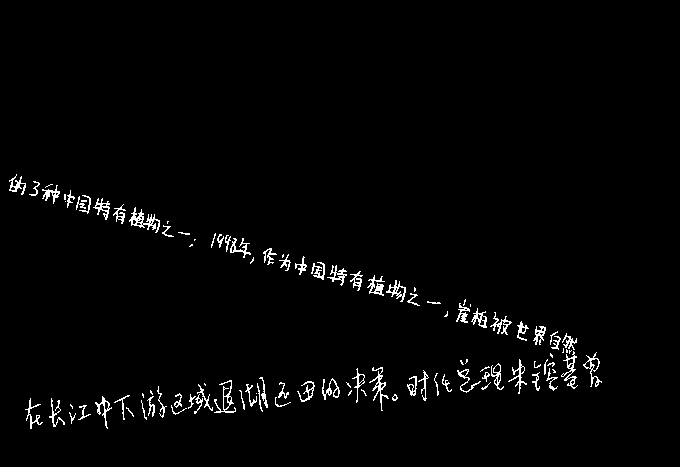 的3种中国特有植物之一；1998年，作为中国特有植物之一，崖柏被世界自然
在长江中下游区域退湖还田的决策。时任总理朱镕基曾